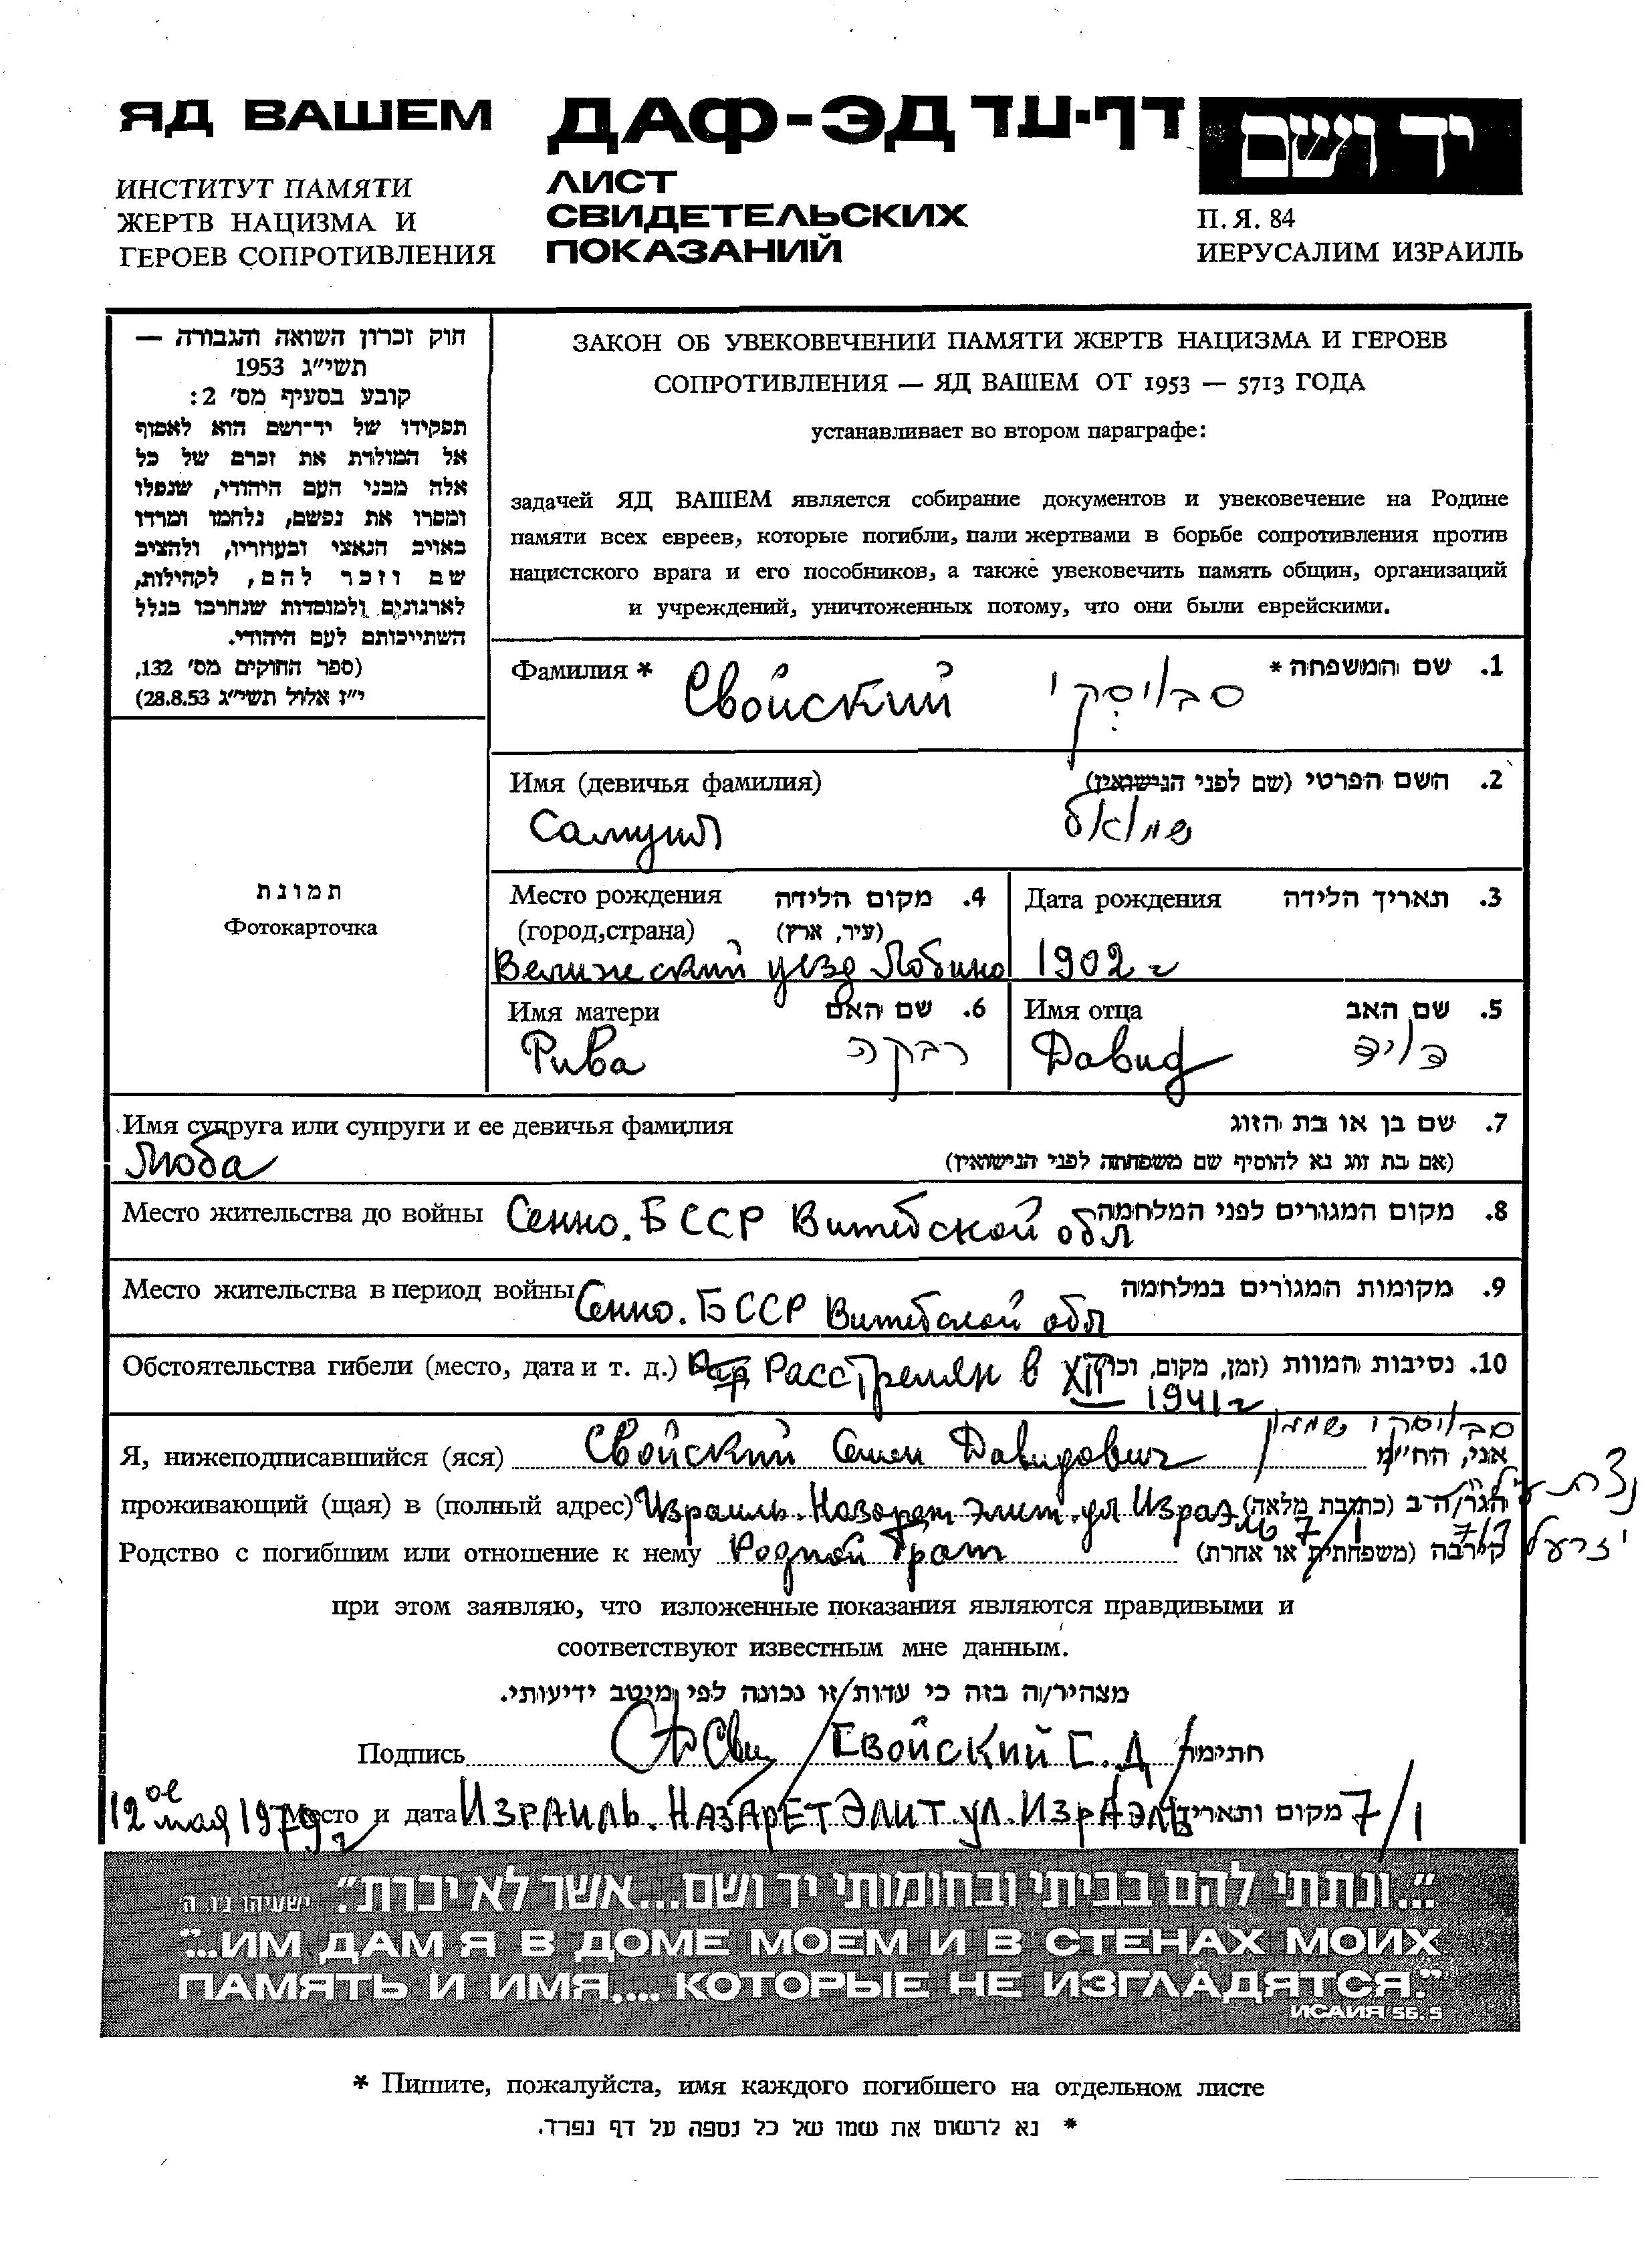 ЯД ВАШЕМ
ИНСТИТУТ ПАМЯТИ
ЖЕРТВ НАЦИЗМА И
ГЕРОЕВ СОПРОТИВЛЕНИЯ
ДАФ-ЭД דף-עד
ЛИСТ
СВИДЕТЕЛЬСКИХ
ПОКАЗАНИЙ
יד ושם
П. Я. 84
ИЕРУСАЛИМ ИЗРАИЛЬ
חוק זכרון השואה והגבורה —
תשי״ג 1953
קובע בסעיף מס׳ 2:
תפקידו של יד־ושם הוא לאסוף
אל המולדת את זכרם של כל
אלה מבני העם היהודי, שנפלו
ומסרו את נפשם, נלחמו ומרדו
באויב הנאצי ובעוזריו, ולהציב
שם וזכר להם, לקהילות,
לארגונים ולמוסדות שנחרבו בגלל
השתייכותם לעם היהודי.
(ספר החוקים מס׳ 132,
י״ז אלול תשי״ג 28.8.53)
ЗАКОН ОБ УВЕКОВЕЧЕНИИ ПАМЯТИ ЖЕРТВ НАЦИЗМА И ГЕРОЕВ
СОПРОТИВЛЕНИЯ — ЯД ВАШЕМ ОТ 1953 — 5713 ГОДА
устанавливает во втором параграфе:
задачей ЯД ВАШЕМ является собирание документов и увековечение на Родине
памяти всех евреев, которые погибли, пали жертвами в борьбе сопротивления против
нацистского врага и его пособников, а также увековечить память общин, организаций
и учреждений, уничтоженных потому, что они были еврейскими.
Фамилия * 1. שם המשפחה *
Свойский סבויסקי
Имя (девичья фамилия) 2. השם הפרטי (שם לפני הנישואין)
Самуил שמואל
תמונת
Фотокарточка
Место рождения 4. מקום הלידה
(город,страна) (עיר, ארץ)
Велижский уезд Лобино
Дата рождения 3. תאריך הלידה
1902 г
Имя матери 6. שם האם
Рива רבקה
Имя отца 5. שם האב
Давид דויד
Имя супруга или супруги и ее девичья фамилия 7. שם בן או בת הזוג
Люба (אם בת זוג נא להוסיף שם משפחתה לפני הנישואין)
Место жительства до войны Сенно. БССР Витебской обл 8. מקום המגורים לפני המלחמה
Место жительства в период войны Сенно. БССР Витебской обл 9. מקומות המגורים במלחמה
Обстоятельства гибели (место, дата и т. д.) Расстрелян в XII 10. נסיבות המוות (זמן, מקום, וכו׳)
1941 г
סבויסקי שמעון
Я, нижеподписавшийся (яся) Свойский Семен Давидович אני, הח״מ
проживающий (щая) в (полный адрес) Израиль. Назарет Элит. ул Израэль 7/1 הגר/ה ב (כתובת מלאה) נצרת עילית
Родство с погибшим или отношение к нему Родной брат קירבה (משפחתית או אחרת) יזרעאל 7/1
при этом заявляю, что изложенные показания являются правдивыми и
соответствуют известным мне данным.
מצהיר/ה בזה כי עדות/זו נכונה לפי מיטב ידיעותי.
Подпись /Свойский С. Д/ חתימה
12ое мая 1979 г Место и дата Израиль. Назарет Элит. ул. Израэль 7/1 מקום ותאריך
״...ונתתי להם בביתי ובחומותי יד ושם...אשר לא יכרת״. ישעיהו נ״ו, ה׳
"...ИМ ДАМ Я В ДОМЕ МОЕМ И В СТЕНАХ МОИХ
ПАМЯТЬ И ИМЯ.... КОТОРЫЕ НЕ ИЗГЛАДЯТСЯ."
ИСАИЯ 56, 5
* Пишите, пожалуйста, имя каждого погибшего на отдельном листе
* נא לרשום את שמו של כל נספה על דף נפרד.